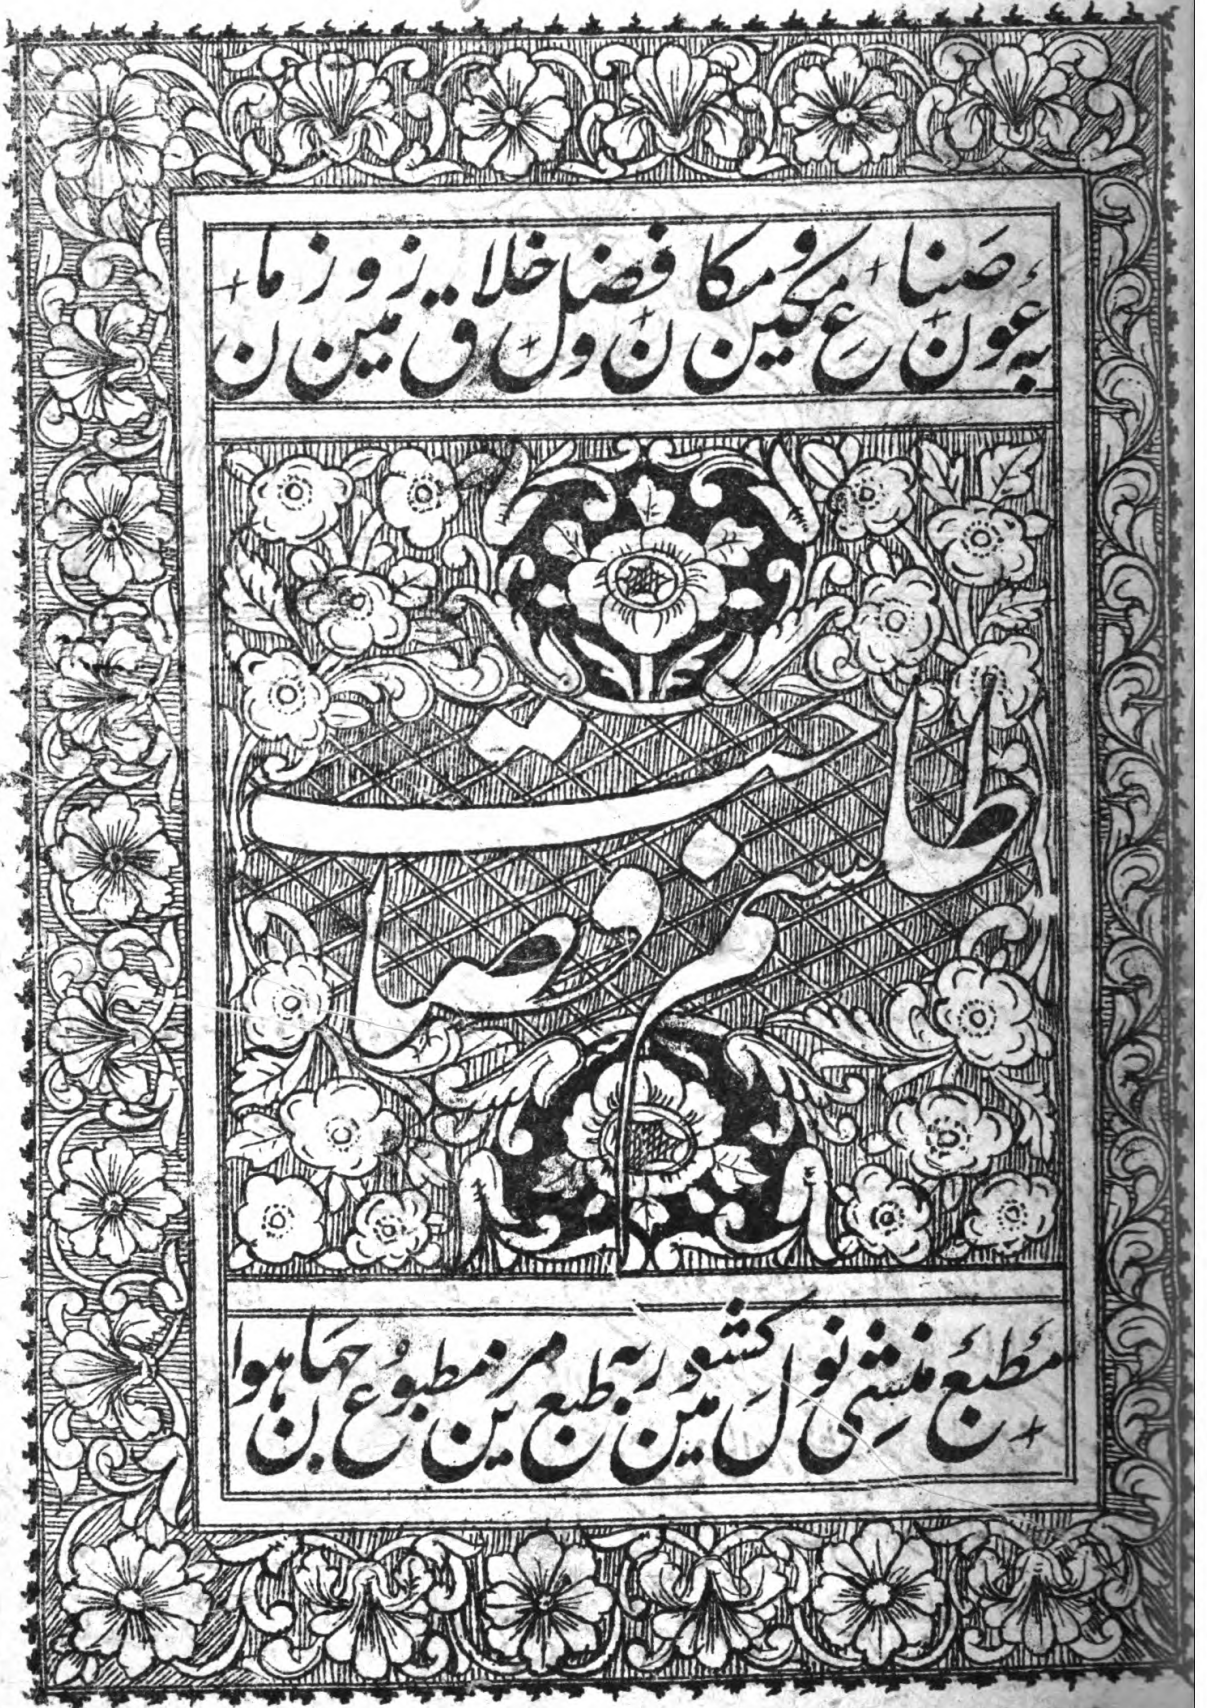 بہ عون صناع مکین و مکان و فضل خلاق زمین و زمان
طلسم فصاحت
مطبع منشی نول کشور مین بہ طبع مزین مطبوع جہان ہوا